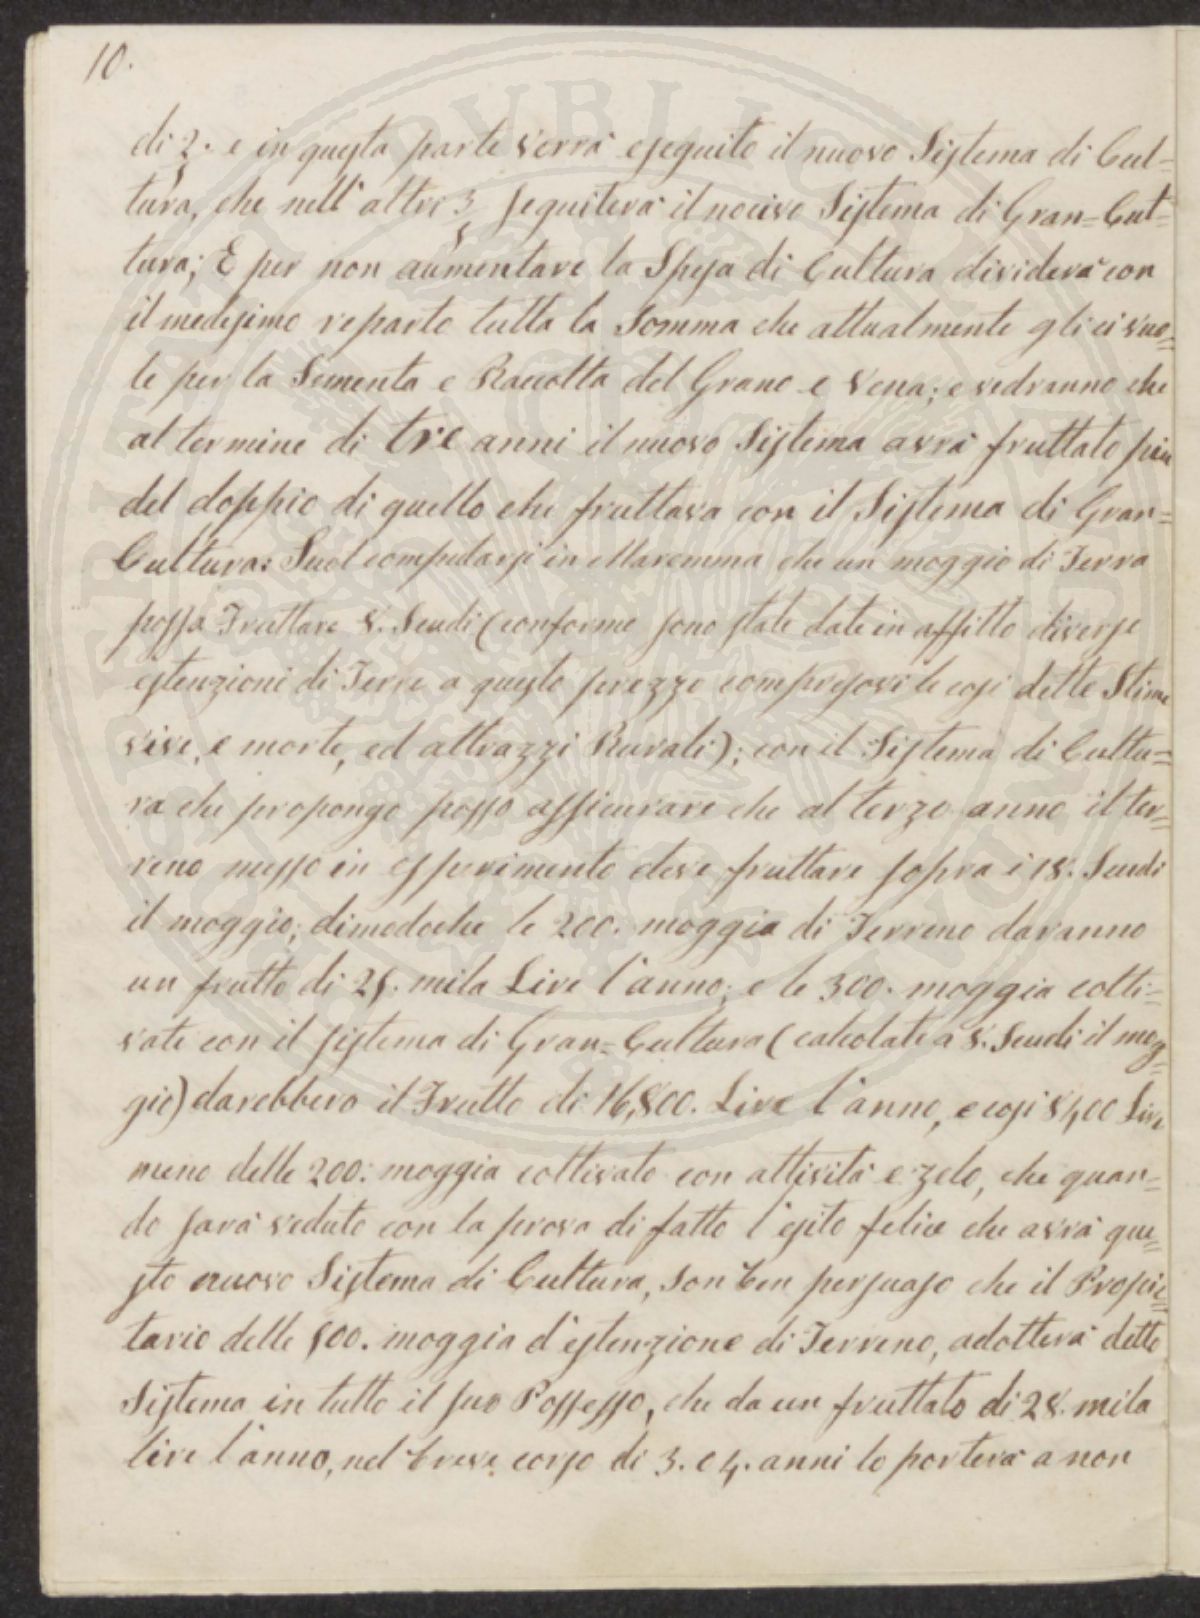 10.
di 2/5 e in questa parte verrà eseguito il nuovo Sistema di Cul=
tura, che nell'altre 3/5 seguiterà il nocivo Sistema di Gran=Cul=
tura; E per non aumentare la Spesa di Cultura dividerà con
il medesimo reparto tutta la Somma che attualmente gli ci vuo=
le per la Sementa e Raccolta del Grano e Vena; e vedranno che
al termine di tre anni il nuovo Sistema avrà fruttato più
del doppio di quello che fruttava con il Sistema di Gran=
Cultura: Suol computarsi in Maremma che un moggio di Terra
possa Fruttare 8. Scudi (conforme sono state date in affitto diverse
estenzioni di Terre a questo prezzo compresovi le così dette Stime
vive, e morte, ed attrazzi Rurali); con il Sistema di Cultu=
ra che propongo posso assicurare che al terzo anno il ter=
reno messo in esperimento deve fruttare sopra i 18. Scudi
il moggio; dimodoche le 200. moggia di Terreno daranno
un frutto di 25. mila Lire l'anno; e le 300. moggia colti=
vate con il sistema di Gran=Cultura (calcolate a 8. Scudi il mog=
gio) darebbero il Frutto di 16,800. Lire l'anno, e così 8400 Lire
meno delle 200. moggia coltivate con attività e zelo, che quan=
do sarà veduto con la prova di fatto l'esito felice che avrà que=
sto nuovo Sistema di Cultura, son ben persuaso che il Propie=
tario delle 500. moggia d'estenzione di Terreno, adotterà detto
Sistema in tutto il suo Possesso, che da un fruttato di 28. mila
lire l'anno, nel breve corso di 3. o 4. anni lo porterà a non